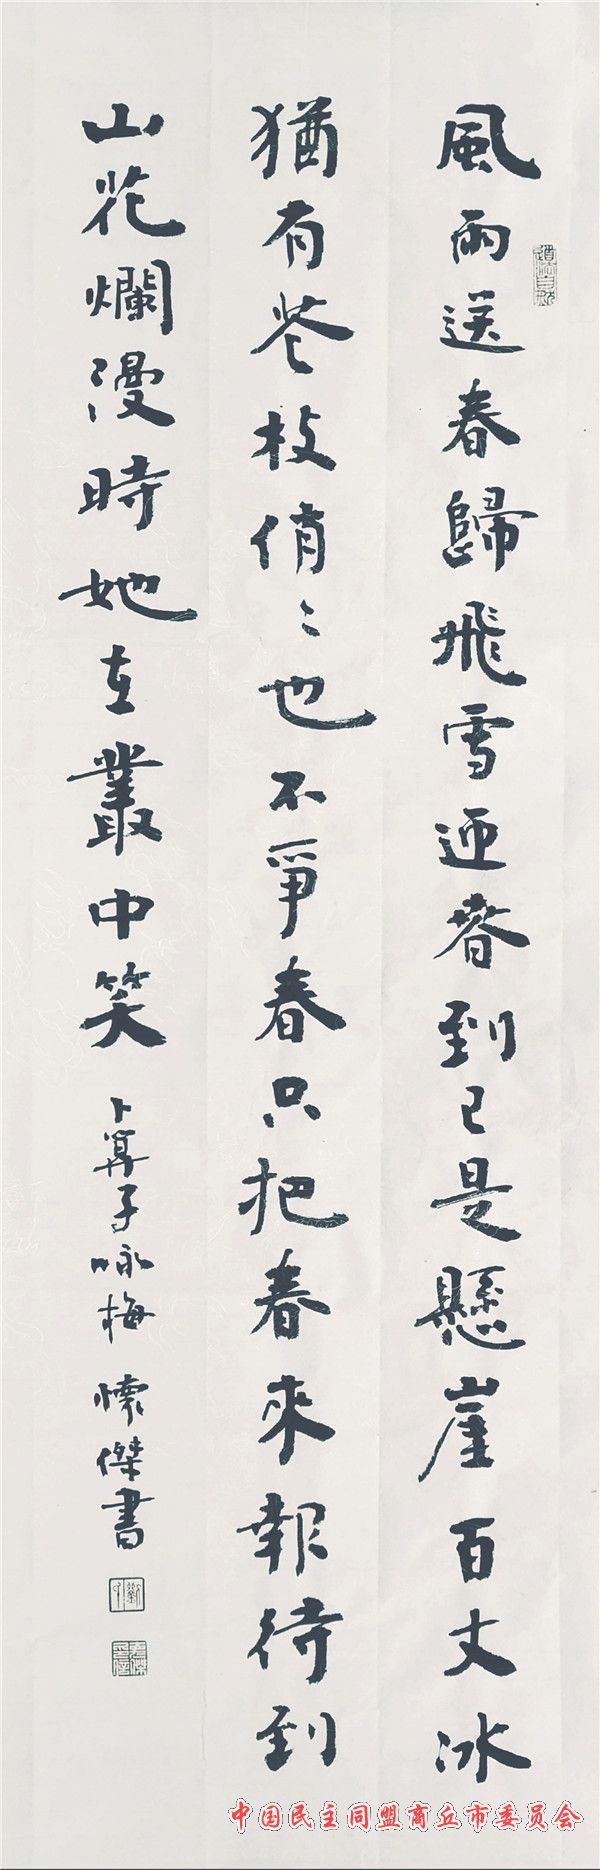 風雨送春歸飛雪迎春到已是懸崖百丈冰
猶有花枝俏〻也不爭春只把春來報待到
山花爛漫時她在叢中笑
卜算子咏梅 懷傑書
道法自然
中国民主同盟商丘市委员会